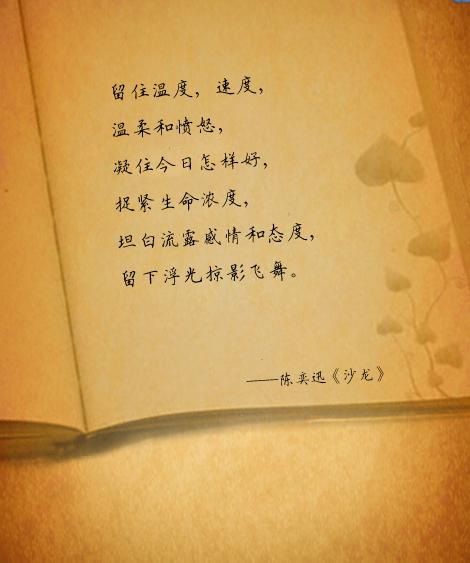 留住温度，速度，
温柔和愤怒，
凝住今日怎样好，
捉紧生命浓度，
坦白流露感情和态度，
留下浮光掠影飞舞。
——陈奕迅《沙龙》